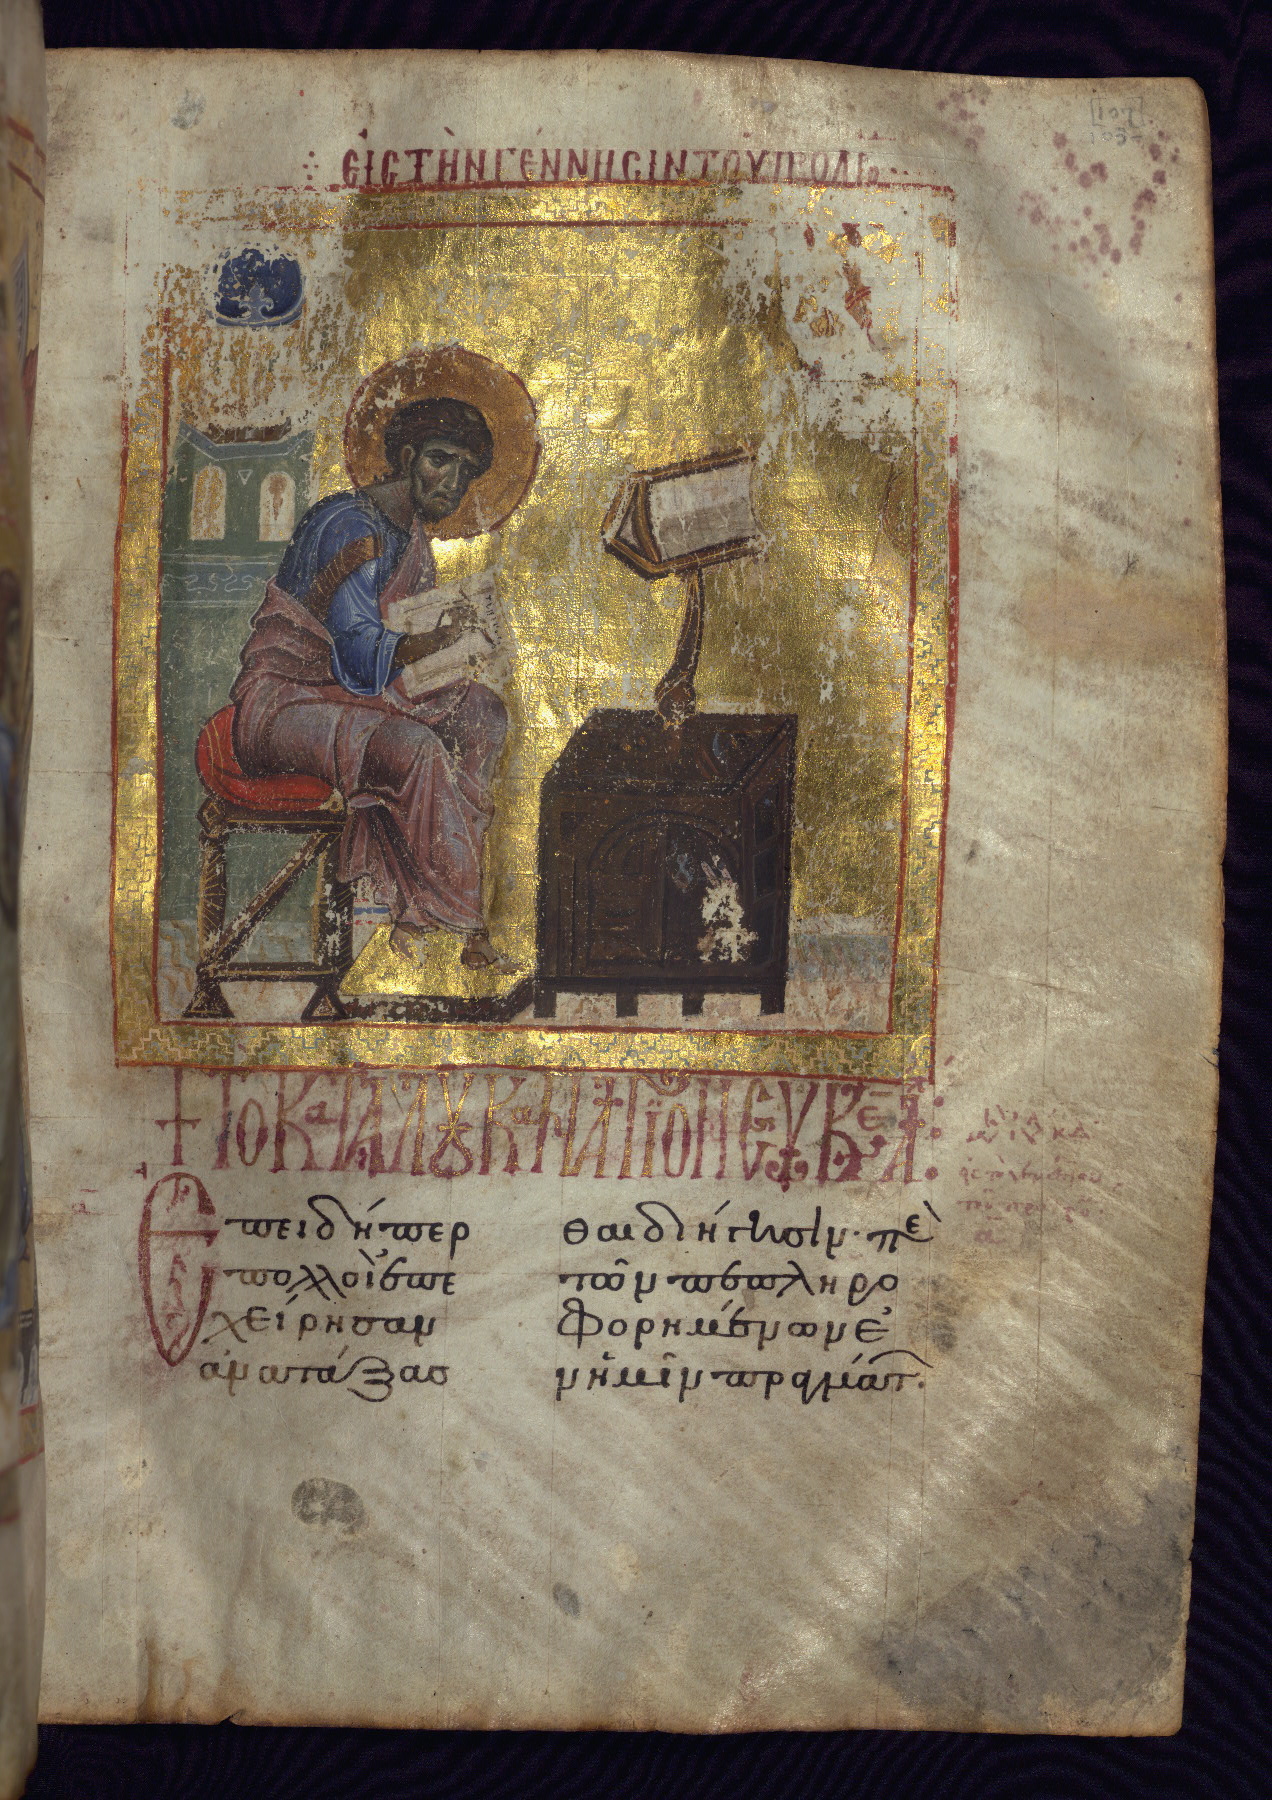 ΕἸϹ ΤῊΝ ΓΈΝΝΗϹΙΝ ΤΟΥ ΠΡΟΔΡ
+ ΤΟ ΚΑΤᾺ ΛΟΥΚΑΝ ἍΓΙΟΝ ΕΥΑΓΓΈΛ:
Ἐπειδήπερ
πολλοὶ ἐπε
χείρησαν
ἀνατάξασ
θαι διήγησιν· πε
τῶν πεπληρο
φορημένων ἐ
ν ἡμῖν πραγμάτ.
[107]